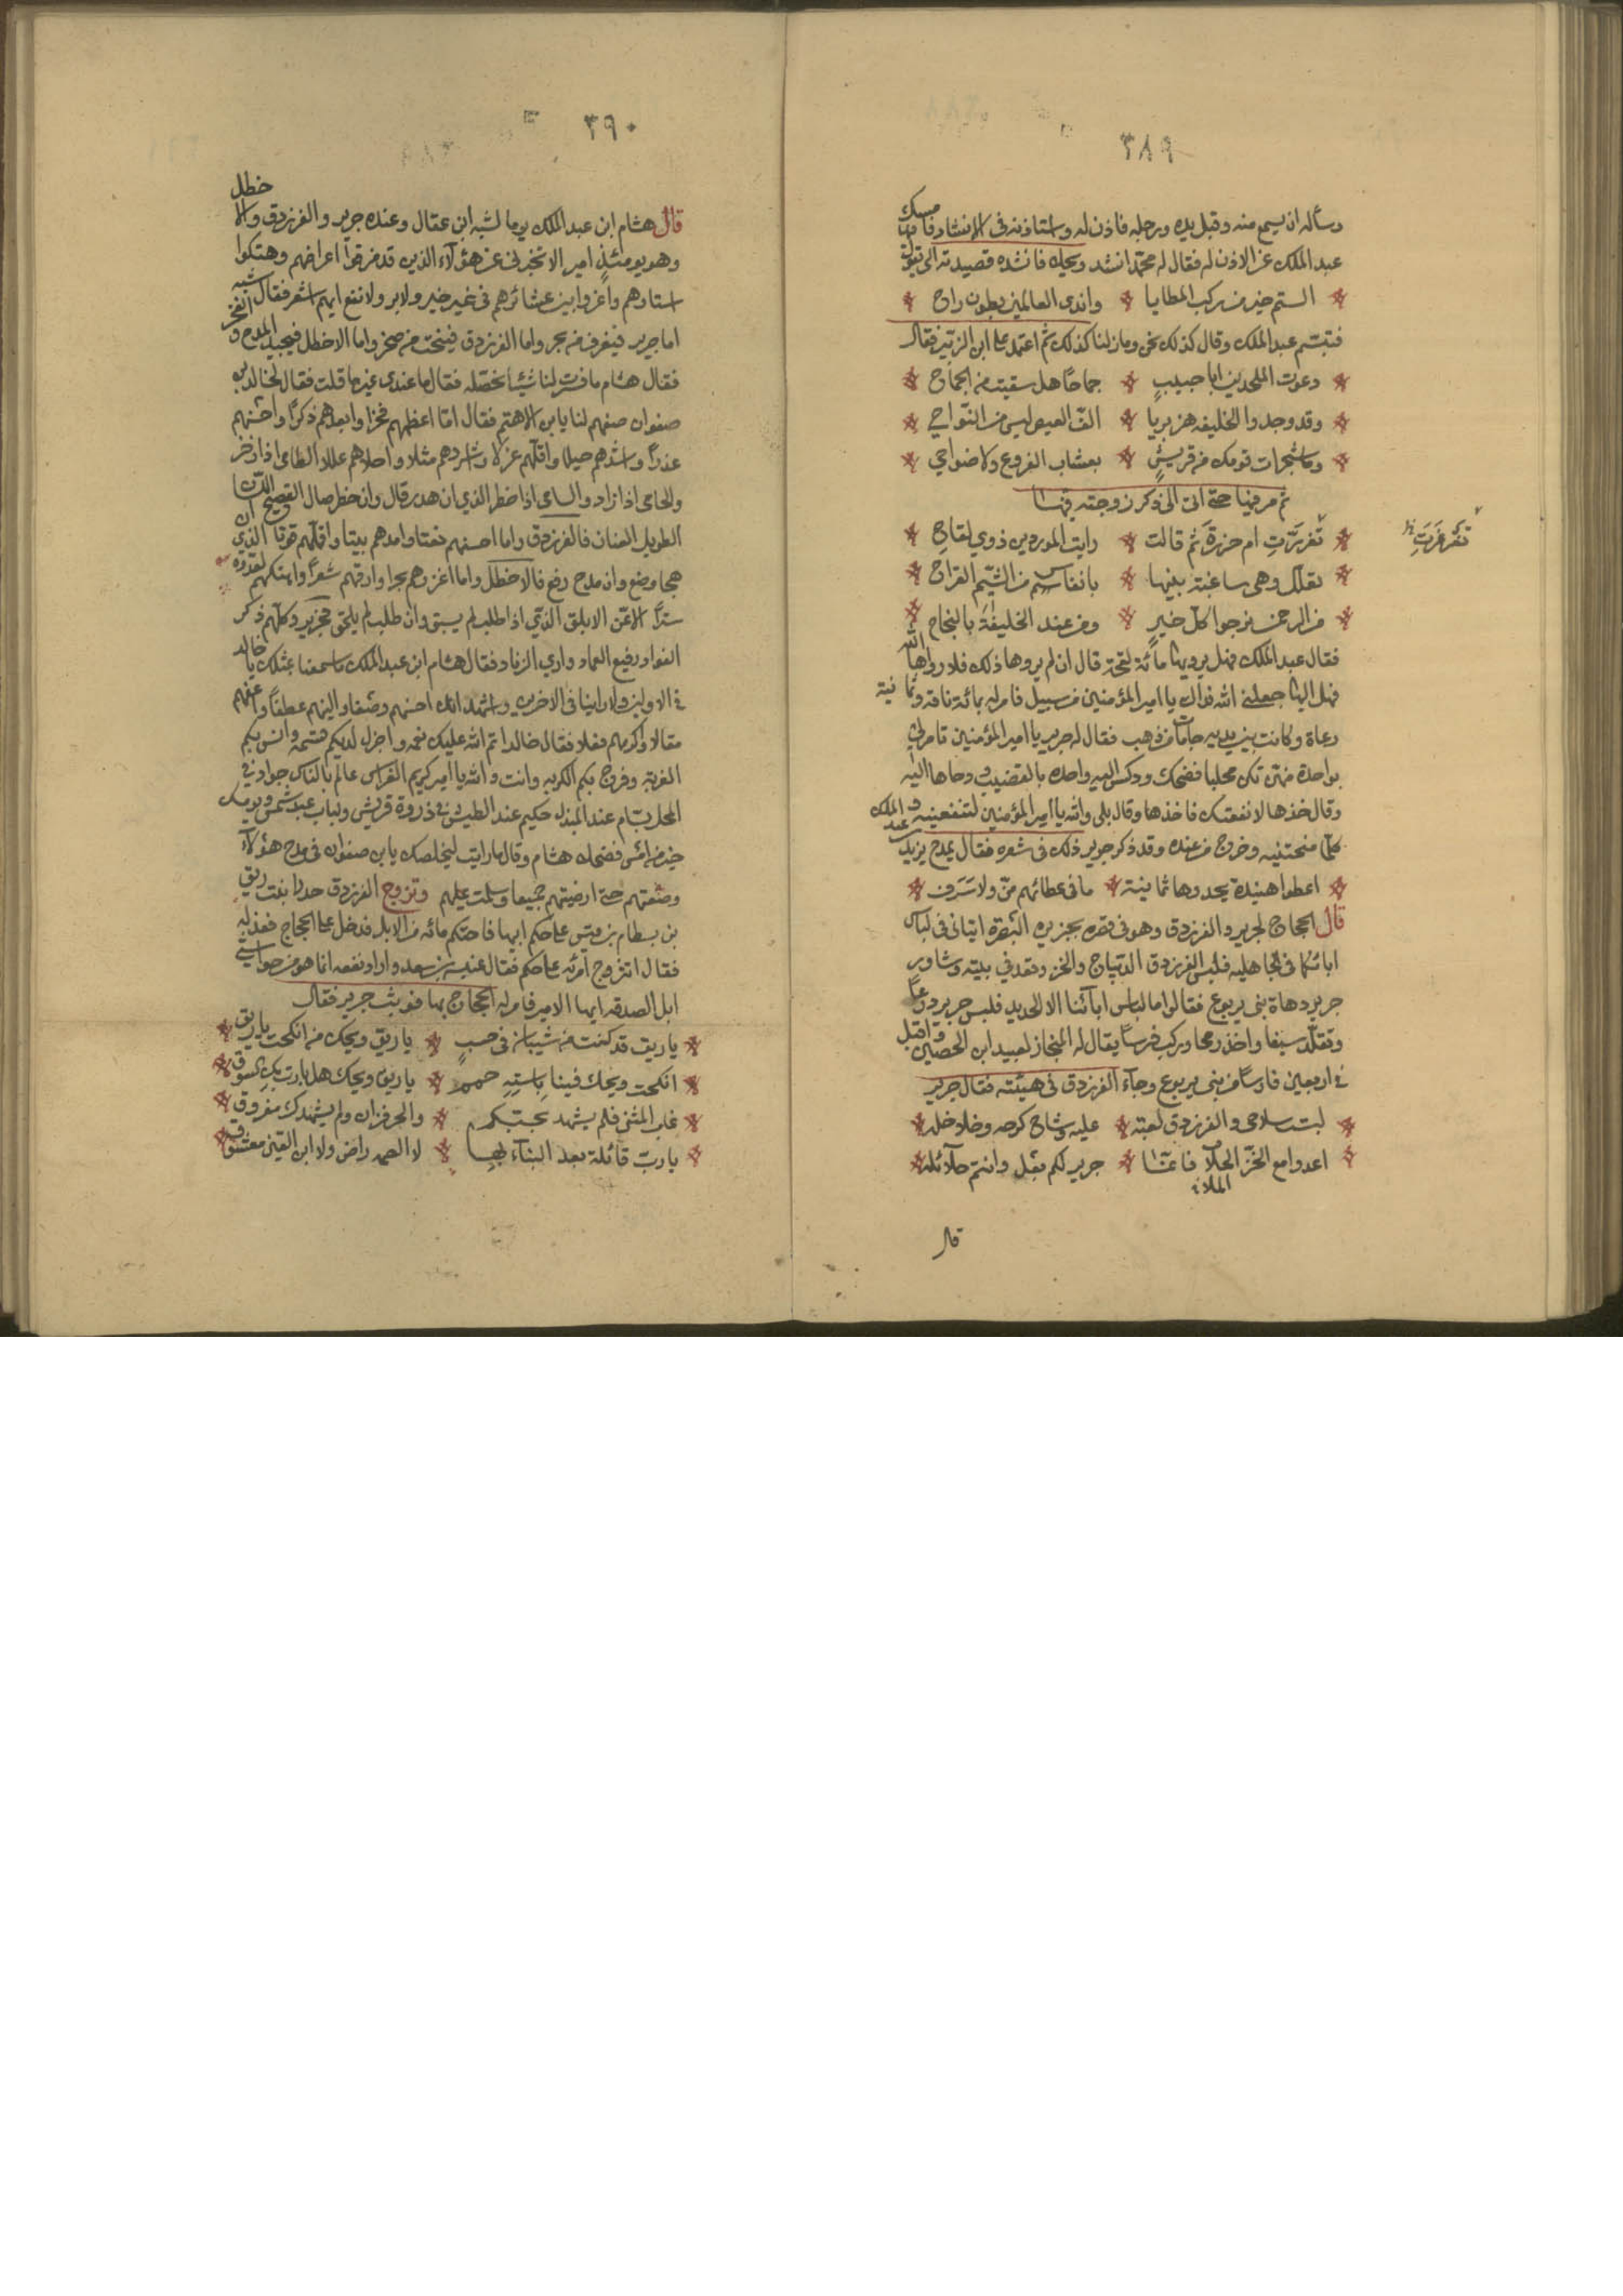 ٣٨٩
وسأله ان يسمع منه وقبل يده ورجله فاذن له واستاذنه فى الانشاد فامسك
عبد الملك عن الاذن له فقال له محمّد انشد ويحك فانشده قصيدته التى يقول فيها
الستم خير من ركب المطايا واندى العالمين بطون راح
فتبسّم عبد الملك وقال كذلك نحن وما زلنا كذلك ثم اعتمد على ابن الزبير فقال
دعوت الملحدين ابا حبيبٍ جماحًا هل سقيت من الجماح
وقد وجدوا الخليفه هزبريا الفّ العيص ليس من النّواحي
وما شجرات قومك من قريشٍ بعشاب الفروع ولا ضواحي
ثم مر فيها حتى اتى الى ذكر زوجته فيها
تعزّزَتِ ام حزرةَ ثم قالت رايت الموردين ذوي لقاح
تعرغرت
تعلّل وهى ساغبة بنيها بانفاس من الشيّم القراح
من الرحمن نرجوا كل خيرٍ ومن عند الخليفةِ بالنجاح
فقال عبد الملك فهل يرويها مائة لقحة قال ان لم يروها ذلك فلا رواها الله
فهل اليها جعلنى الله فداك يا امير المؤمنين من سبيل فامر له بمائة ناقة وثمانية
رعاة وكانت بين يديه جامات من ذهب فقال له جرير يا امير المؤمنين تامر لي
بواحدة منهن تكن محلبا فضحك ودكس اليه واحده بالقضيب ودحاها اليه
وقال خذها لا نفعتك فاخذها وقال بلى والله يا امير المؤمنين لتنفعنيه و
كلّما منحتنيه وخرج من عنده وقد ذكر جرير ذلك فى شعره فقال يمدح يزيد بن عبد الملك
اعطوا هنيدة يحدوها ثمانية ما فى عطائهم منّ ولا سَرَف
قال الحجاج لجرير والفرزدق وهو فى قصره بجزيره البصرة ايتيانى فى لباس
ابائكما فى الجاهليه فلبس الفرزدق الديباج والخز وقعد في بيته وشاور
جرير دهاة بنى يربوع فقالوا ما لباس ابآئنا الا الحديد فلبس جرير درعًا
وتقلّد سيفا واخذ رمحا وركب فرسًا يقال له المنجاز لعبيد ابن الحصين واقبل
فى اربعين فارسًا من بنى يربوع وجآء الفرزدق فى هيئته فقال جرير
لبست سلاحى والفرزدق لعبته عليه وشاح كرجه وخلاخله
اعدوا مع الخزّ الحلآ فانما جرير لكم بعْل وانتم حلآئله
الملاب
قال
٣٩٠
قال هشام ابن عبد الملك يوما لشبه ابن عقال وعنده جرير والفرزدق والاخطل
وهو يومئذٍ امير الا تخبرنى عن هؤلآء الذين قد مزقوا اعراضهم وهتكوا
استارهم واغروا بين عشائرهم فى غير خير ولا بر ولا نفع ايهم اشعر فقال شبه
اما جرير فيغرف من بحر واما الفرزدق فينحت من صخر واما الاخطل فيجيد المدح و الفخر
فقال هشام ما فسرت لنا شيئًا نحصّله فقال ما عندى غير ما قلت فقال لخالد بن
صفوان صفهم لنا يا بن الاهتم فقال امّا اعظمهم فخرًا وابعدهم ذكرًا واحسنهم
عذرًا واشدهم ميلا واقلّهم غزلا واشردهم مثلا واحلاهم عللا الطامى اذا زخر
والحامى اذا زاد والسامى اذا خطر الذي ان هدر قال وان خطر صال الفصيح اللّسان
الطويل العنان فالفرزدق واما احسنهم نعتا وامدهم بيتا واقلّهم فوتا الذى ان
هجا وضع وان مدح رفع فالاخطل واما اغزرهم بحرا وارقهم شعرًا واهتكهم لعدوّه
سترًا الاغر الابلق الذي اذا طلب لم يسبق وان طلب لم يلحق فجرير وكلّهم ذكر
الفواد رفيع العماد واري الزناد فقال هشام ابن عبد الملك ما سمعنا بمثلك يا خالد
فى الاولين ولا راينا فى الاخرين واشهد انك احسنهم وصفا والينهم عطفًا واعفهم
مقالا واكرمهم فعلا فقال خالد اتم الله عليك نعمه واجزل لديكم قسمه وانس بكم
الغربة وفرج بكم الكربه وانت والله يا امير كريم الغراس عالم بالناس جواد في
المحل بسّام عند البذل حكيم عند الطيش فى ذروة قريش ولباب عبد شمس ويومك
خير من امس فضحك هشام وقال ما رايت لتخلصك يا بن صفوان فى مدح هؤلآء
وصفتهم حتى ارضيتهم جميعا وسلمت عليهم وتزوج الفرزدق حدرا بنت زيق
بن بسطام بن قيس على حكم ابيها فاحتكم مائه من الابل فدخل على الحجاج فعذله
فقال اتتزوج امرئه على حكم فقال عنبسه بن سعد واراد نفعه انما هو من حواشى
ابل الصدقه ايها الامير فامر له الحجاج بها فوثب جرير فقال
يا زيق قد كنت من شيبان فى حسبٍ يا زيق ويحك من انكحت يا زيق
انكحت ويحك فينا باستِهِ حمم يا زيق ويحك هل بارت بك السوق
غاب المثنى فلم يشهد نجيّكم والحوفزان ولم يشهدك مفروق
يا ربّ قائلة بعد البنآء بها لا الصهر راض ولا ابن القين معشوق